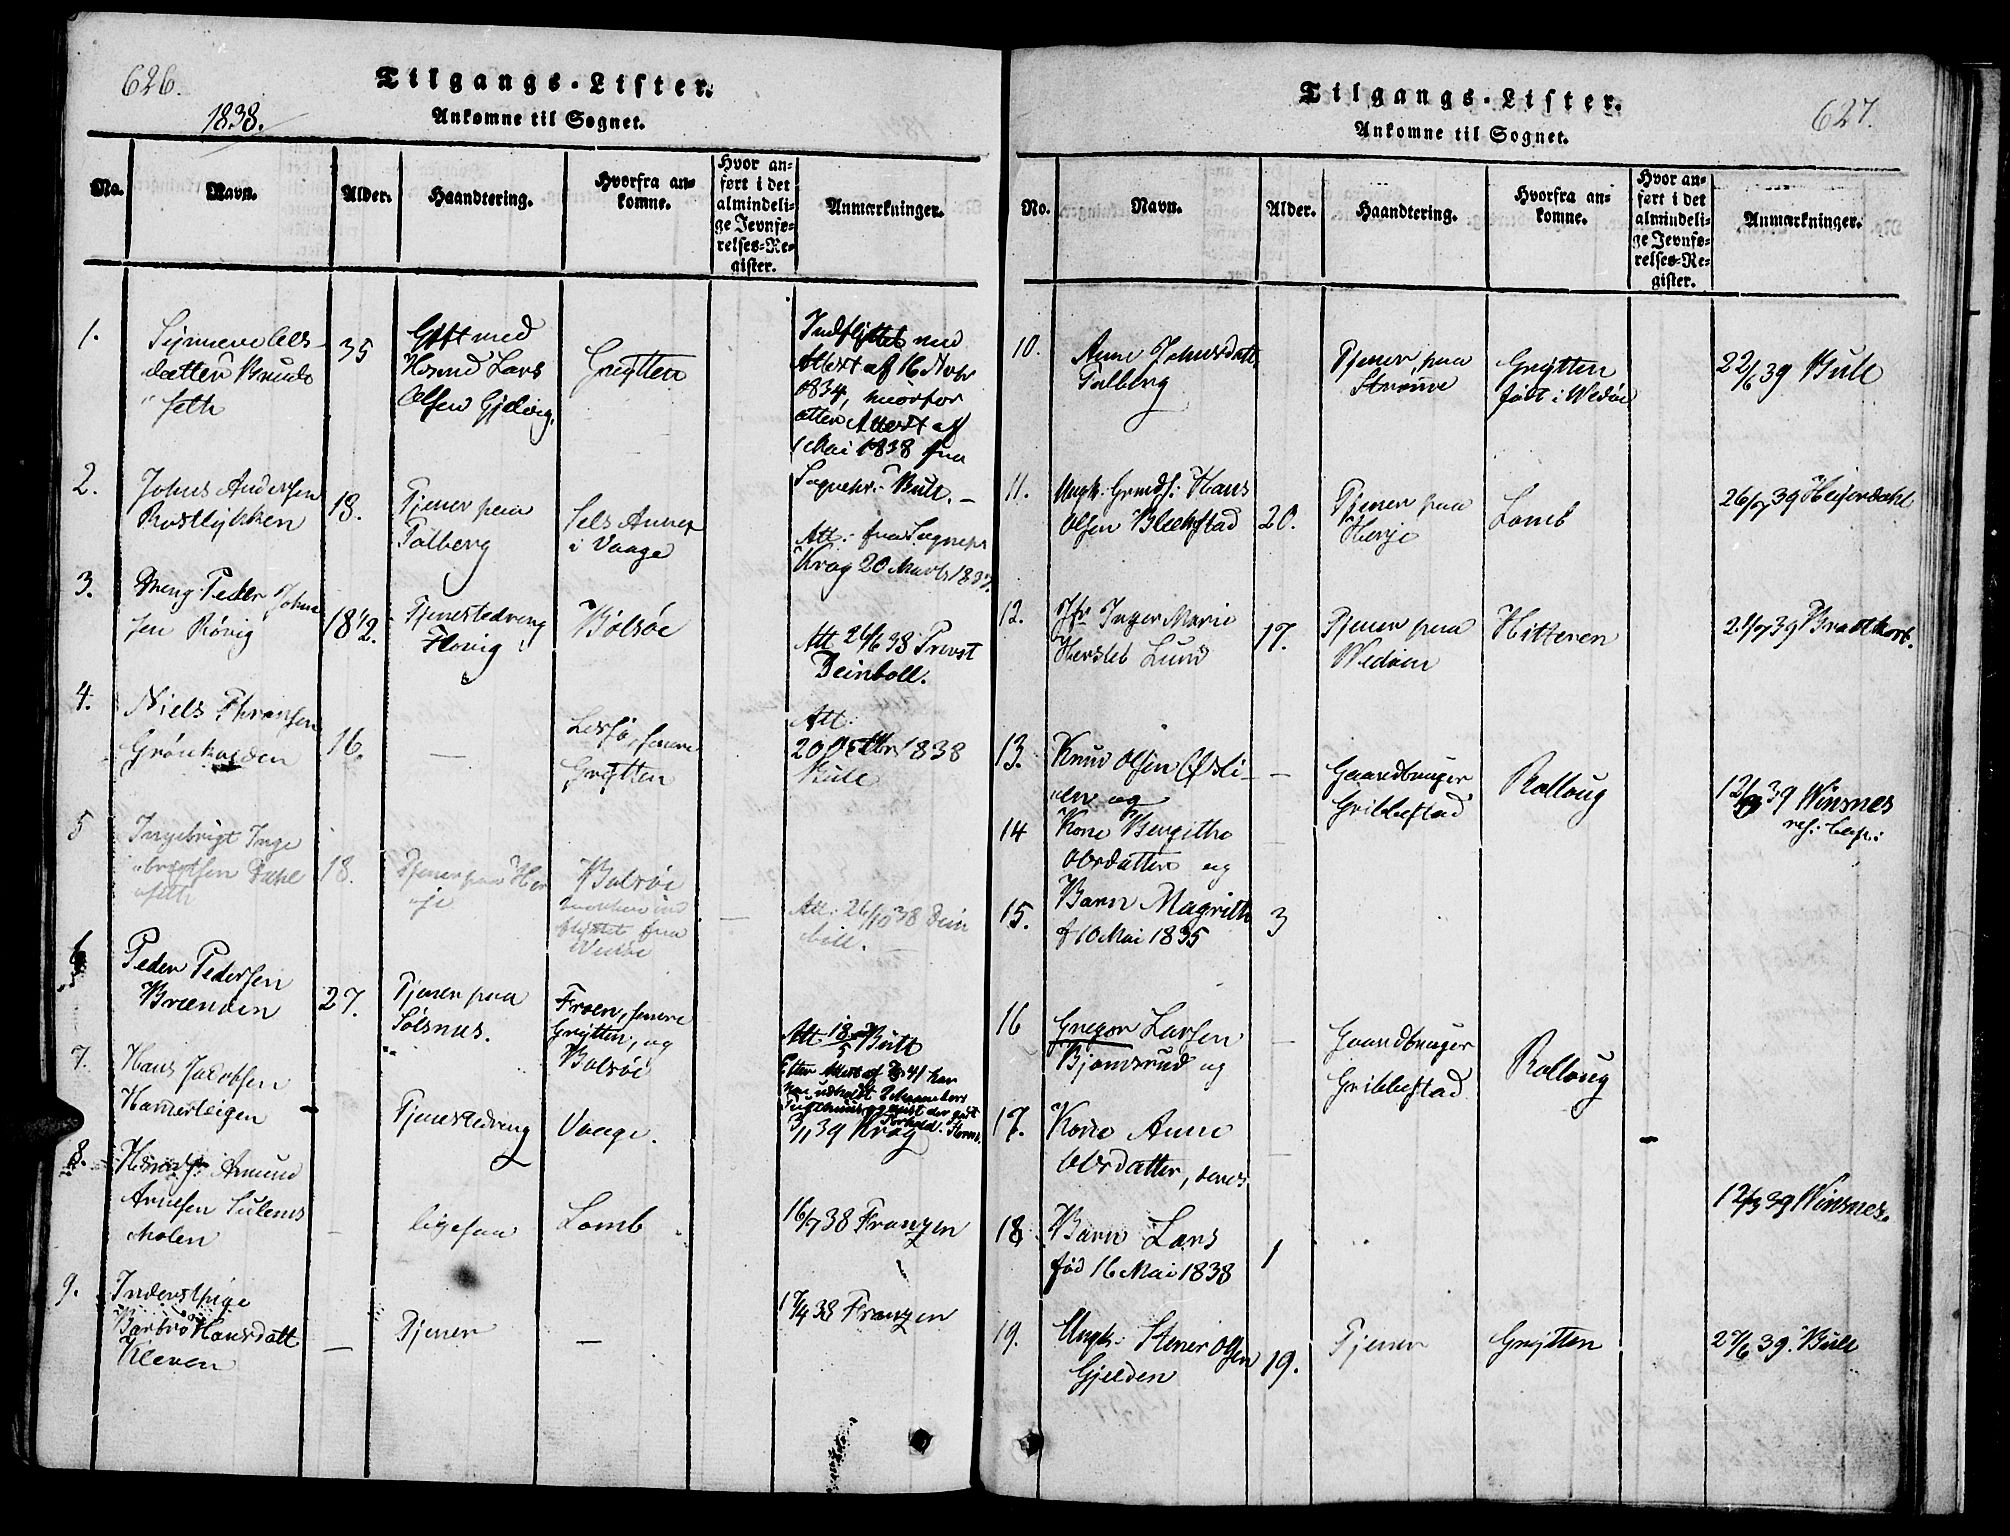 626.
Tilgangs-Lister.
1838.
Ankomne til Sognet.
No.
Navn.
Alder.
Haandtering.
Hvorfra an-
komne.
Hvor an-
ført i det
almindeli-
ge Jevnfø-
relses-Re-
gister.
Anmærkninger.
1.
datter Bruds
seth
35
Gift med
Huusmd Lars
Olsen Gjelvig.
Grytten
Indflyttet med
Attest af 16 Novbr
1834, hvorfor
Attest af
1 Mai 1838 fra
Sognepr. Bull. –
2.
Johns Andersen
Rostlykken
18.
Tjener paa
Tølberg
Sels Annex
i Vaage
Att: fra Sognepr
Krag 20 Marts 1837.
3.
Dreng Peder John
sen Rövig
18 1/2.
Tjenestedreng
Hovig
Bolsöe
Att 26/6 38 Provst
Deinboll.
4.
Niels Thronsen
Grönhaugen
16.
–
Lessö, senere
Grytten
Att:
20 Octbr 1838
Bull
5
Ingebrigt Inge
brigtsen Dahl
seth
18.
Tjener paa Her
je
Bolsöe
flyttet fra
Wedöe
Att: 26/10 38 Dein
boll.
6
Peder Pedersen
Brænden
27.
Tjener paa
Sölsnes.
Froen, senere
Grytten, og
Bolsöe
Att 18/5 Bull
7.
Hans Jacobsen
Hamerleigen
–
Tjenestedreng
Vaage.
3/1 39 Krag
8.
Amund
Arnesen Sulems
Molen
–
ligesaa
Lomb
16/7 38 Franzen
9.
Inderstpige
Barbro Hansdatt
Kleven
–
Tjener
–
17/4 38 Franzen
Tilgangs-Lister.
627.
Ankomne til Sognet.
No.
Navn.
Alder.
Haandtering.
Hvorfra an-
komne.
Hvor an-
ført i det
almindeli-
ge Jevnfø-
relses-Re-
gister.
Anmærkninger.
10.
Anne Johnsdatt
Talberg
Tjener paa
Grytten
født i Wedöe
22/6 39 Bull
11.
Ungk. Hans
Olsen Blekestad
20.
Tjener paa
Herje
Lomb
26/7 39 Heyerdahl
12.
Jfr Inger Marie
Hersleb Lund
17.
Tjener paa
Wedöen
Hitteren
21/7 39 Brodtkorb.
13.
Knud Olsen Østli-
en og
–
Gaardbruger
Gribbestad
Rollaug
12/3 39 Winsnes
res: Cap:
14
Kone Bergithe
Olsdatter og
15.
Barn Magrithe
f 10 Mai 1835
3
16
Gregor Larsen
Bjornsrud og
–
Gaardbruger
Gribbestad
Rollaug
17.
Kone Anne
Olsdatter, deres
–
12/3 39 Winsnes.
18
Barn Lars
fød 16 Mai 1838
1
19.
Ungk. Stener Olsen
Gjelden
19.
Tjener
Grytten
27/6 39. Bull